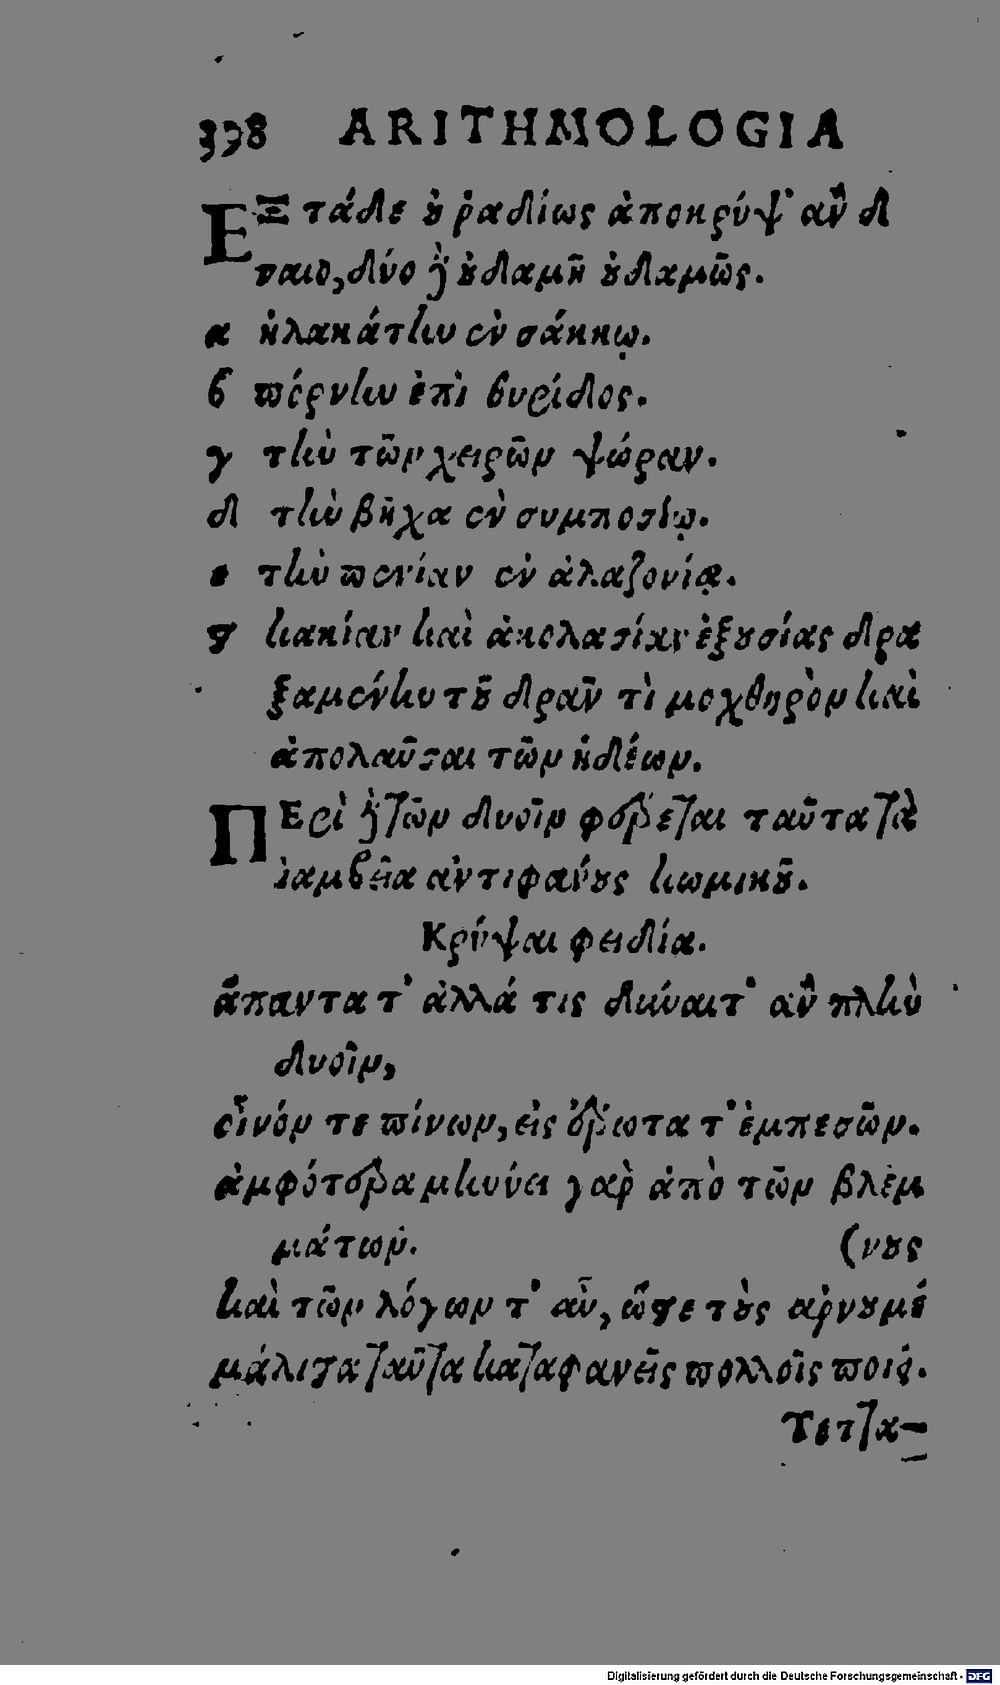 398 ARITHMOLOGIA
ΕΞ τάδε ὐ ῥαδίως ἀποκρύψ' ἂν δ
ναιο, δύο ἢ ὐδαμῆ ὐδαμῶς.
α ἠλακάτην ἐν σάκκῳ.
β πόρνην ἐπὶ θυρίδος.
γ τὴν τῶν χειρῶν ψώραν.
δ τὴν βῆχα ἐν συμποσίῳ.
ε τὴν πενίαν ἐν ἀλαζονίᾳ.
ϛ κακίαν καὶ ἀκολασίαν ἐξουσίας δρα
ξαμένην τοῦ δρᾶν τὶ μοχθηρὸν καὶ
ἀπολαῦσαι τῶν ἡδέων.
ΠΕρὶ ἢ τῶν δυοῖν φέρεται ταῦτα τὰ
ἰαμβεῖα ἀντιφάνους κωμικοῦ.
Κρύψαι φειδία.
ἅπαντα τ' ἀλλά τις δύναιτ' ἂν πλὴν
δυοῖν,
οἶνόν τε πίνων, εἰς ἔρωτα τ' ἐμπεσών.
ἀμφότερα μηνύει γὰρ ἀπὸ τῶν βλεμ
μάτων. (νους
καὶ τῶν λόγων τ' αὖ, ὥστε τοὺς ἀρνουμέ
μάλιστα ταῦτα καταφανεῖς πολλοῖς ποιεῖ.
Τετ7α-
Digitalisierung gefördert durch die Deutsche Forschungsgemeinschaft - DFG